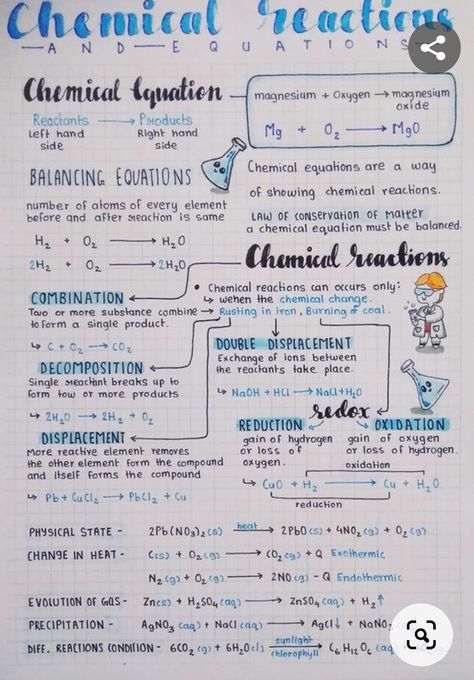 Chemical reactions
AND EQUATIONS
Chemical Equation
Reactants → Products
left hand side Right hand side
magnesium + Oxygen → magnesium oxide
Mg + O₂ → MgO
BALANCING EQUATIONS
number of atoms of every element
before and after reaction is same
H₂ + O₂ → H₂O
2H₂ + O₂ → 2H₂O
Chemical equations are a way
of showing chemical reactions.
LAW OF CONSERVATION OF MATTER
a chemical equation must be balanced.
Chemical reactions
• Chemical reactions can occurs only:
↳ wehen the chemical change.
↳ Rusting in iron, Burning of coal.
COMBINATION
Two or more substance combine
to form a single product.
↳ C + O₂ → CO₂
DECOMPOSITION
Single reactant breaks up to
form tow or more products
↳ 2H₂O → 2H₂ + O₂
DISPLACEMENT
More reactive element removes
the other element form the compound
and itself forms the compound
↳ Pb + CuCl₂ → PbCl₂ + Cu
DOUBLE DISPLACEMENT
Exchange of ions between
the reactants take place.
↳ NaOH + HCl → NaCl + H₂O
redox
REDUCTION
gain of hydrogen
or loss of
oxygen.
OXIDATION
gain of oxygen
or loss of hydrogen.
oxidation
↳ CuO + H₂ → Cu + H₂O
reduction
PHYSICAL STATE - 2Pb(NO₃)₂(s) heat → 2PbO(s) + 4NO₂(g) + O₂(g)
CHANGE IN HEAT - C(s) + O₂(g) → CO₂(g) + Q Exothermic
N₂(g) + O₂(g) → 2NO(g) - Q Endothermic
EVOLUTION OF GAS - Zn(s) + H₂SO₄(aq) → ZnSO₄(aq) + H₂↑
PRECIPITATION - AgNO₃(aq) + NaCl(aq) → AgCl↓ + NaNO₃
DIFF. REACTIONS CONDITION - 6CO₂(g) + 6H₂O(l) sunlight → chlorophyll C₆H₁₂O₆(aq)